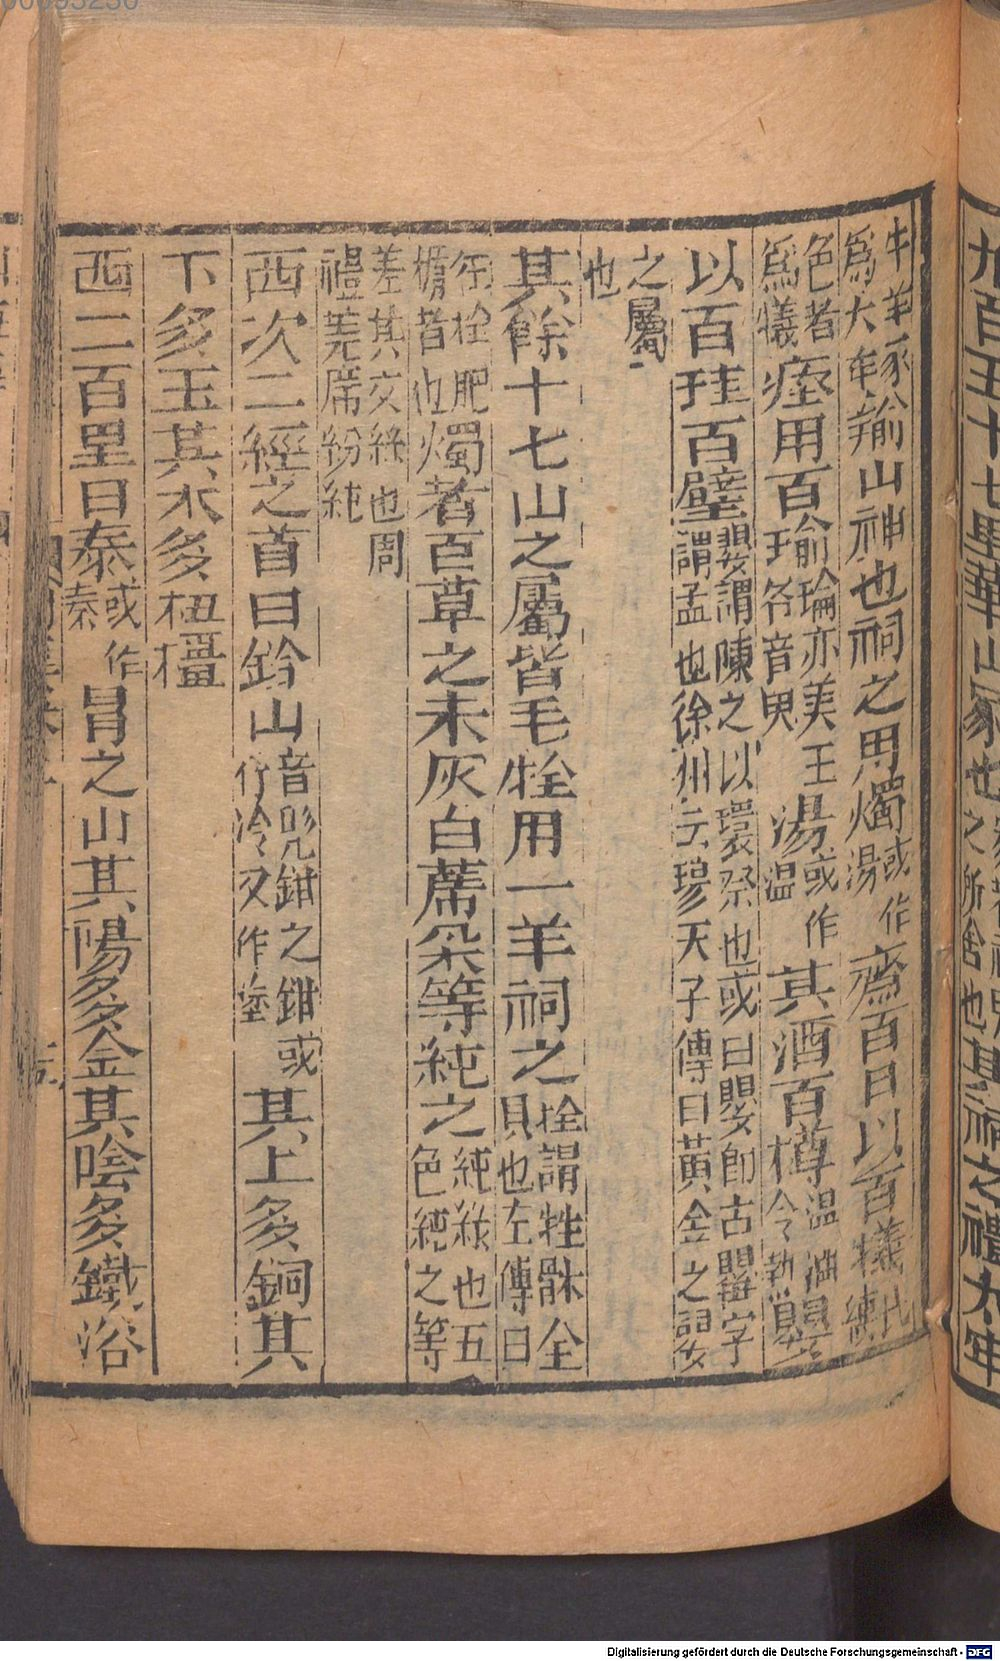 九百五十七里華山冢也冢者神鬼之所舍也其祠之禮太牢
牛羊豕爲大牢羭山神也祠之用燭或作湯齋百日以百犧牲純
色者爲犧瘞用百瑜瑜亦美王名音臾湯或作温其酒百樽温酒令熱嬰
以百珪百璧嬰謂陳之以環祭也或曰嬰卽古罌字謂孟也徐州云穆天子傳曰黃金之嬰
之屬也
其餘十七山之屬皆毛牷用一羊祠之牷謂牲體全具也左傳曰
牷牷肥腯者也燭者百草之未灰白蓆采等純之純緣也五色純之等
差其文綵也周禮莞席紛純
西次二經之首曰鈐山音髡鉗之鉗或作冷又作塗其上多銅其
下多玉其木多杻橿
西二百里曰泰或作秦冒之山其陽多金其陰多鐵浴
Digitalisierung gefördert durch die Deutsche Forschungsgemeinschaft - DFG